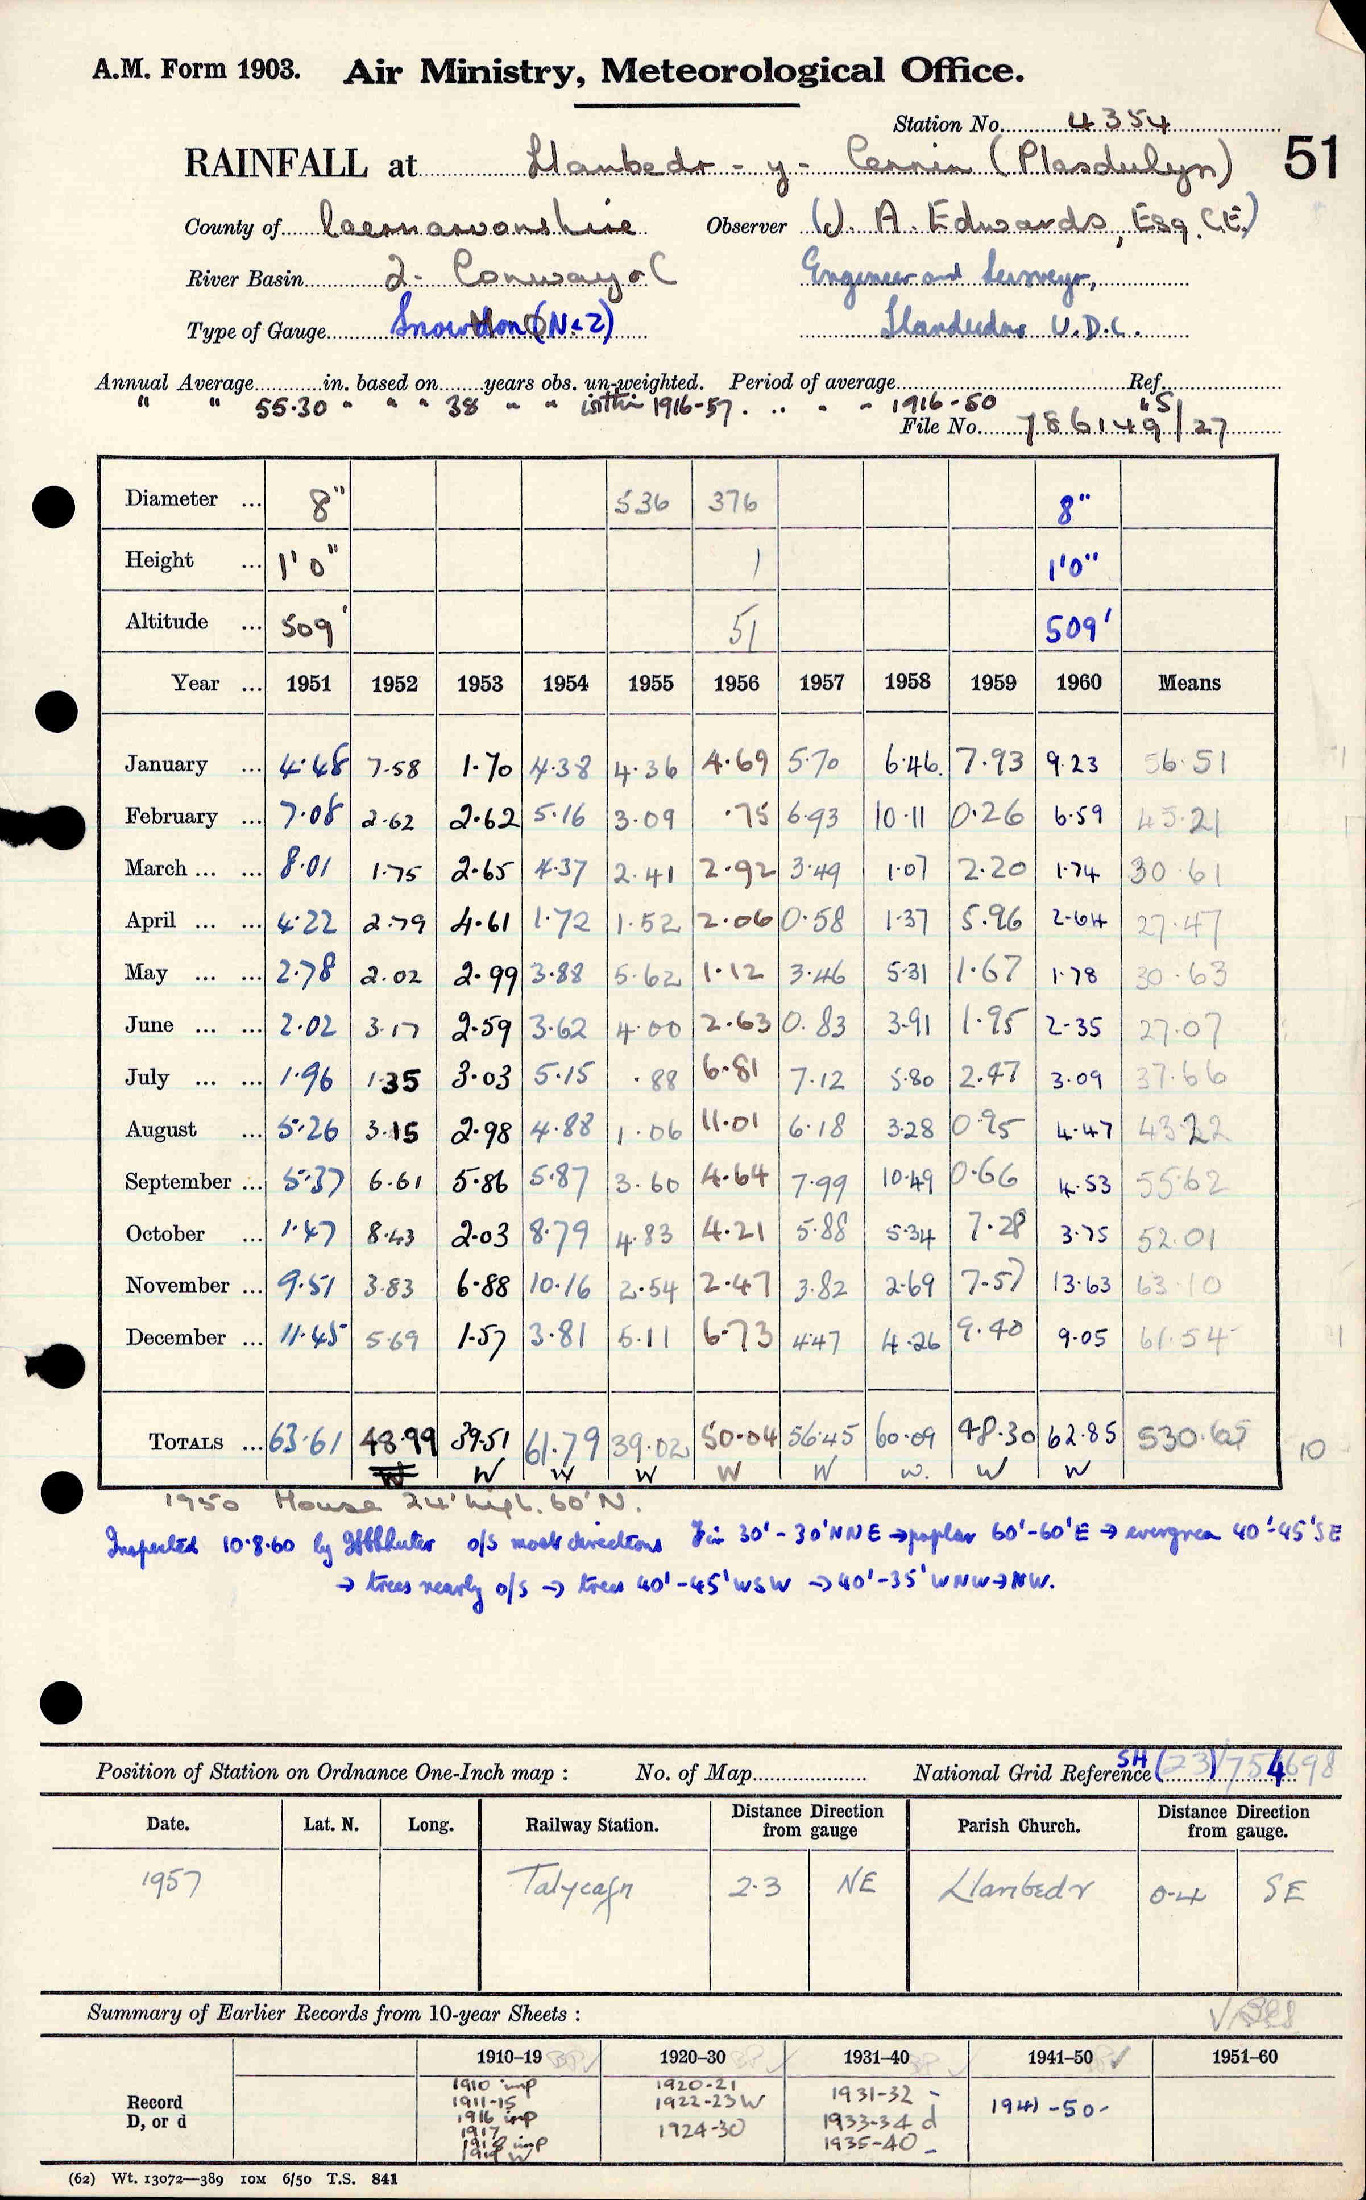 A.M. Form 1903. Air Ministry, Meteorological Office.
Station No. 4354
RAINFALL at Llanbedr-y-Cennin (Plasdulyn) 51
County of Caernarvonshire Observer (J. A. Edwards, Esq. C.E.)
River Basin 2. Conway Engineer and Surveyor,
Type of Gauge Snowdon (No 2) Llandudno U.D.C.
Annual Average in. based on years obs. un-weighted. Period of average Ref.
" " 55.30 " " " 38 " " within 1916-57. " " " 1916-50 "S
File No. 786149/27
Diameter ... 8" 536 376 8"
Height ... 1'0" 1 1'0"
Altitude ... 509' 51 509'
Year ... 1951 1952 1953 1954 1955 1956 1957 1958 1959 1960 Means
January ... 4.48 7.58 1.70 4.38 4.36 4.69 5.70 6.46 7.93 9.23 56.51
February ... 7.08 2.62 2.62 5.16 3.09 .75 6.93 10.11 0.26 6.59 45.21
March ... ... 8.01 1.75 2.65 4.37 2.41 2.92 3.49 1.07 2.20 1.74 30.61
April ... ... 4.22 2.79 4.61 1.72 1.52 2.06 0.58 1.37 5.96 2.64 27.47
May ... ... 2.78 2.02 2.99 3.88 5.62 1.12 3.46 5.31 1.67 1.78 30.63
June ... ... 2.02 3.17 2.59 3.62 4.00 2.63 0.83 3.91 1.95 2.35 27.07
July ... ... 1.96 1.35 3.03 5.15 .88 6.81 7.12 5.80 2.47 3.09 37.66
August ... 5.26 3.15 2.98 4.88 1.06 11.01 6.18 3.28 0.95 4.47 43.22
September ... 5.37 6.61 5.86 5.87 3.60 4.64 7.99 10.49 0.66 4.53 55.62
October ... 1.47 8.43 2.03 8.79 4.83 4.21 5.88 5.34 7.28 3.75 52.01
November ... 9.51 3.83 6.88 10.16 2.54 2.47 3.82 2.69 7.57 13.63 63.10
December ... 11.45 5.69 1.57 3.81 5.11 6.73 4.47 4.26 9.40 9.05 61.54
TOTALS ... 63.61 48.99 39.51 61.79 39.02 50.04 56.45 60.09 48.30 62.85 530.65 10
W W W W W W W. W W
1950 House 24' high. 60'N.
Inspected 10.8.60 by o/s most directions Fir 30'-30'NNE → poplar 60'-60'E → evergreen 40'-45'SE
→ trees nearly o/s → trees 40'-45'WSW → 40'-35'WNW→NW.
Position of Station on Ordnance One-Inch map : No. of Map National Grid Reference SH (23) 754698
Date. Lat. N. Long. Railway Station. Distance Direction from gauge Parish Church. Distance Direction from gauge.
1957 Talycafn 2.3 NE Llanbedr 0.4 SE
Summary of Earlier Records from 10-year Sheets :
1910–19 1920–30 1931–40 1941–50 1951–60
Record
D, or d
1910 imp
1911-15
1916 imp
1917
1918 imp
1919 W
1920-21
1922-23 W
1924-30
1931-32 -
1933-34 d
1935-40 -
1941-50-
(62) Wt. 13072—389 10M 6/50 T.S. 841